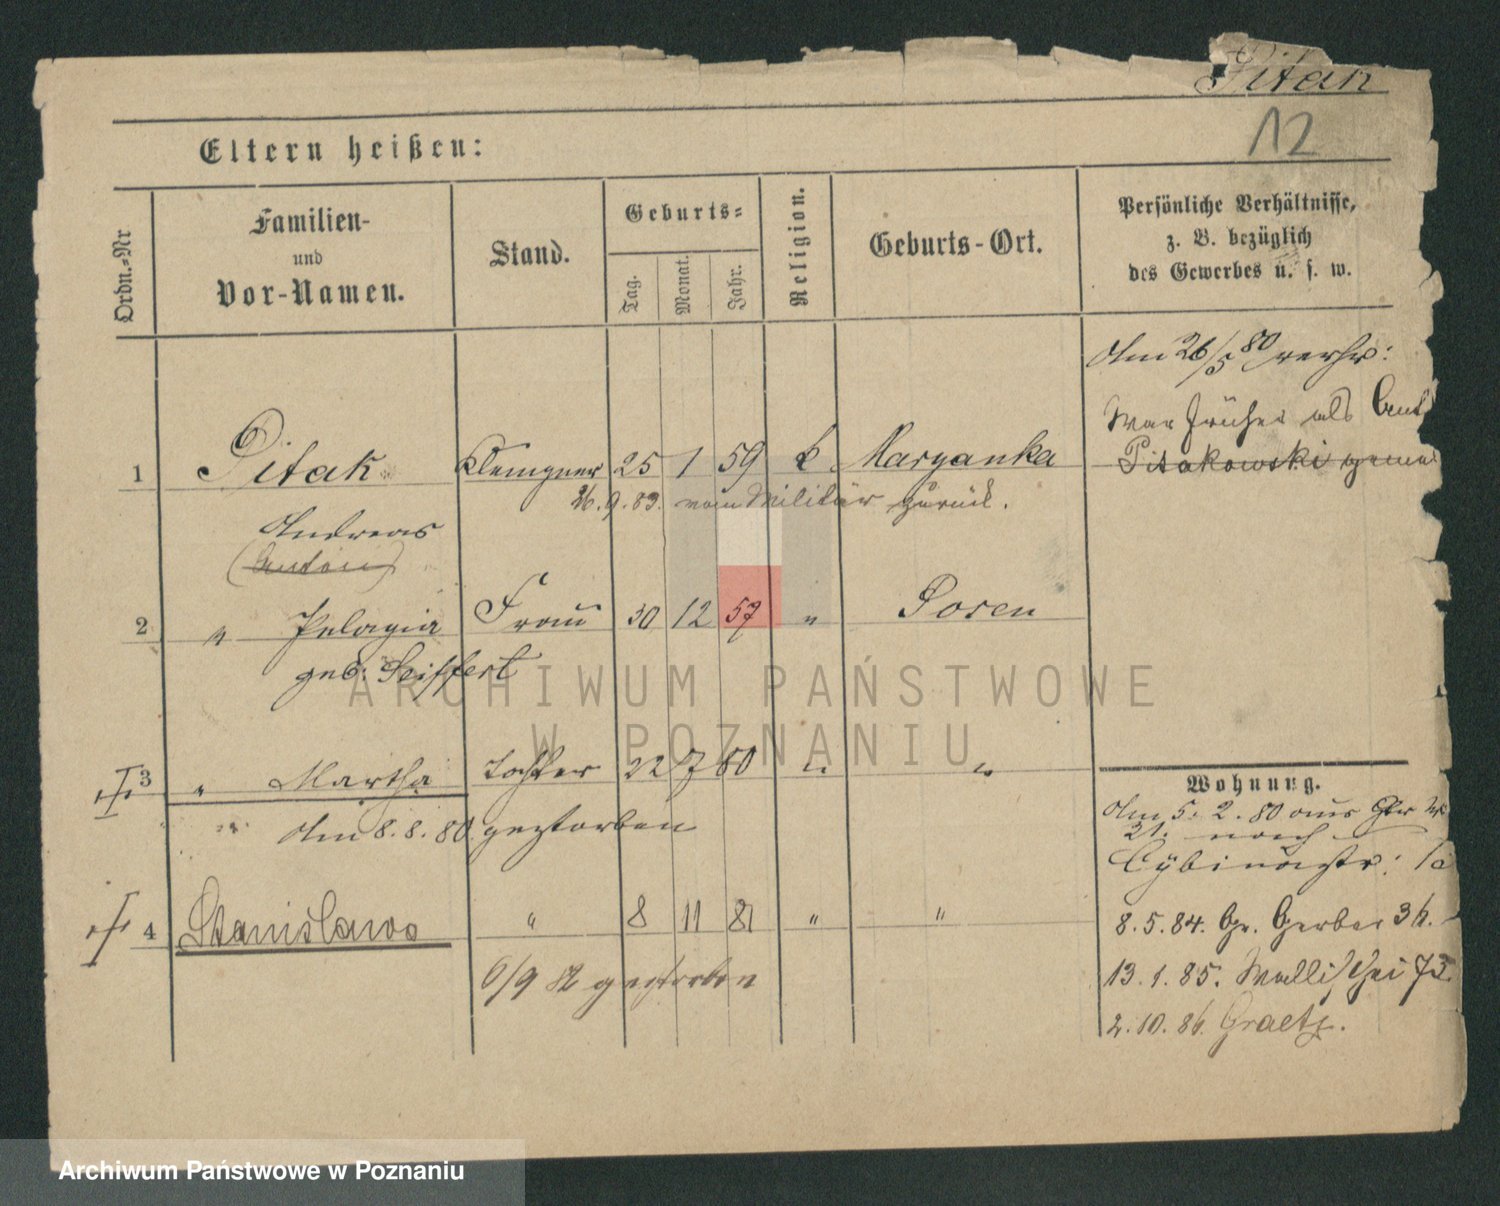 Pitak
12
Eltern heißen:
Ordn.=Nr
Familien-
und
Vor-Namen.
Stand.
Geburts=
Tag.
Monat.
Jahr.
Religion.
Geburts-Ort.
Persönliche Verhältnisse,
z. B. bezüglich
des Gewerbes u. s. w.
Am 26/5 80 verhr:
War früher als Ant
Pitakowski geme
1 Pitak Klempner 25 1 59 k Maryanka
26.9.83. vom Militär zurück.
Andreas
(Anton)
2 " Pelagia Frau 30 12 57 " Posen
geb: Seiffert
3 " Martha Tochter 22 7 80 " "
Am 8.8.80 gestorben
4 Stanislawa " 8 11 81 " "
6/9 82 gestorben
Wohnung.
Am 5.2.80 aus
31. nach
Cybinastr: 1a
8.5.84. Gr. Gerber 36.
13.1.85. Wallischei 73
2.10.86. Graetz.
ARCHIWUM PAŃSTWOWE
W POZNANIU
Archiwum Państwowe w Poznaniu